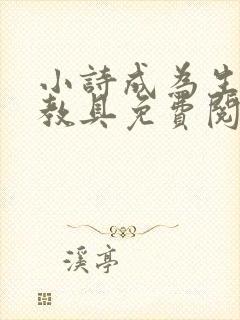 小詩成為生
教具免費閱
溪亭